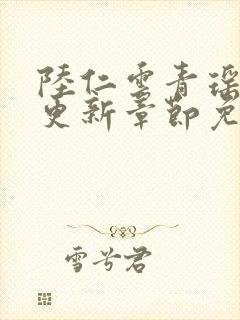 陸仁雲青瑶
更新章節免
雪兮君